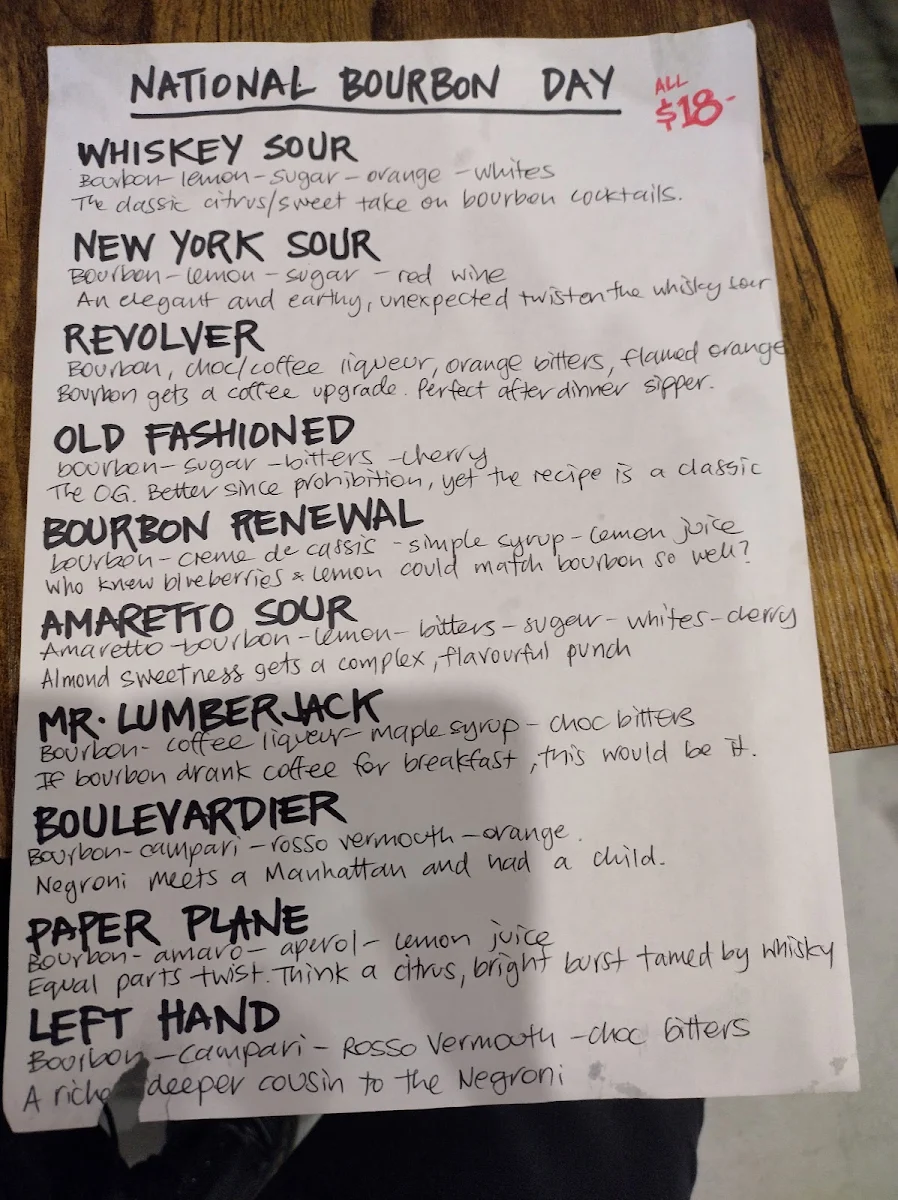 NATIONAL BOURBON DAY
ALL
$18-
WHISKEY SOUR
Bourbon-lemon-sugar-orange-whites
The classic citrus/sweet take on bourbon cocktails.
NEW YORK SOUR
Bourbon-lemon-sugar-red wine
An elegant and earthy, unexpected twist on the whisky sour
REVOLVER
Bourbon, choc/coffee liqueur, orange bitters, flamed orange
Bourbon gets a coffee upgrade. Perfect after dinner sipper.
OLD FASHIONED
bourbon-sugar-bitters-cherry
The OG. Better since prohibition, yet the recipe is a classic
BOURBON RENEWAL
bourbon-creme de cassic-simple syrup-lemon juice
Who knew blueberries & lemon could match bourbon so well?
AMARETTO SOUR
Amaretto-bourbon-lemon-bitters-sugar-whites-cherry
Almond sweetness gets a complex, flavourful punch
MR. LUMBERJACK
Bourbon-coffee liqueur-maple syrup-choc bitters
If bourbon drank coffee for breakfast, this would be it.
BOULEVARDIER
Bourbon-campari-rosso vermouth-orange.
Negroni meets a Manhattan and had a child.
PAPER PLANE
Bourbon-amaro-aperol-lemon juice
Equal parts twist. Think a citrus, bright burst tamed by whisky
LEFT HAND
Bourbon-Campari-Rosso Vermouth-choc bitters
A deeper cousin to the Negroni